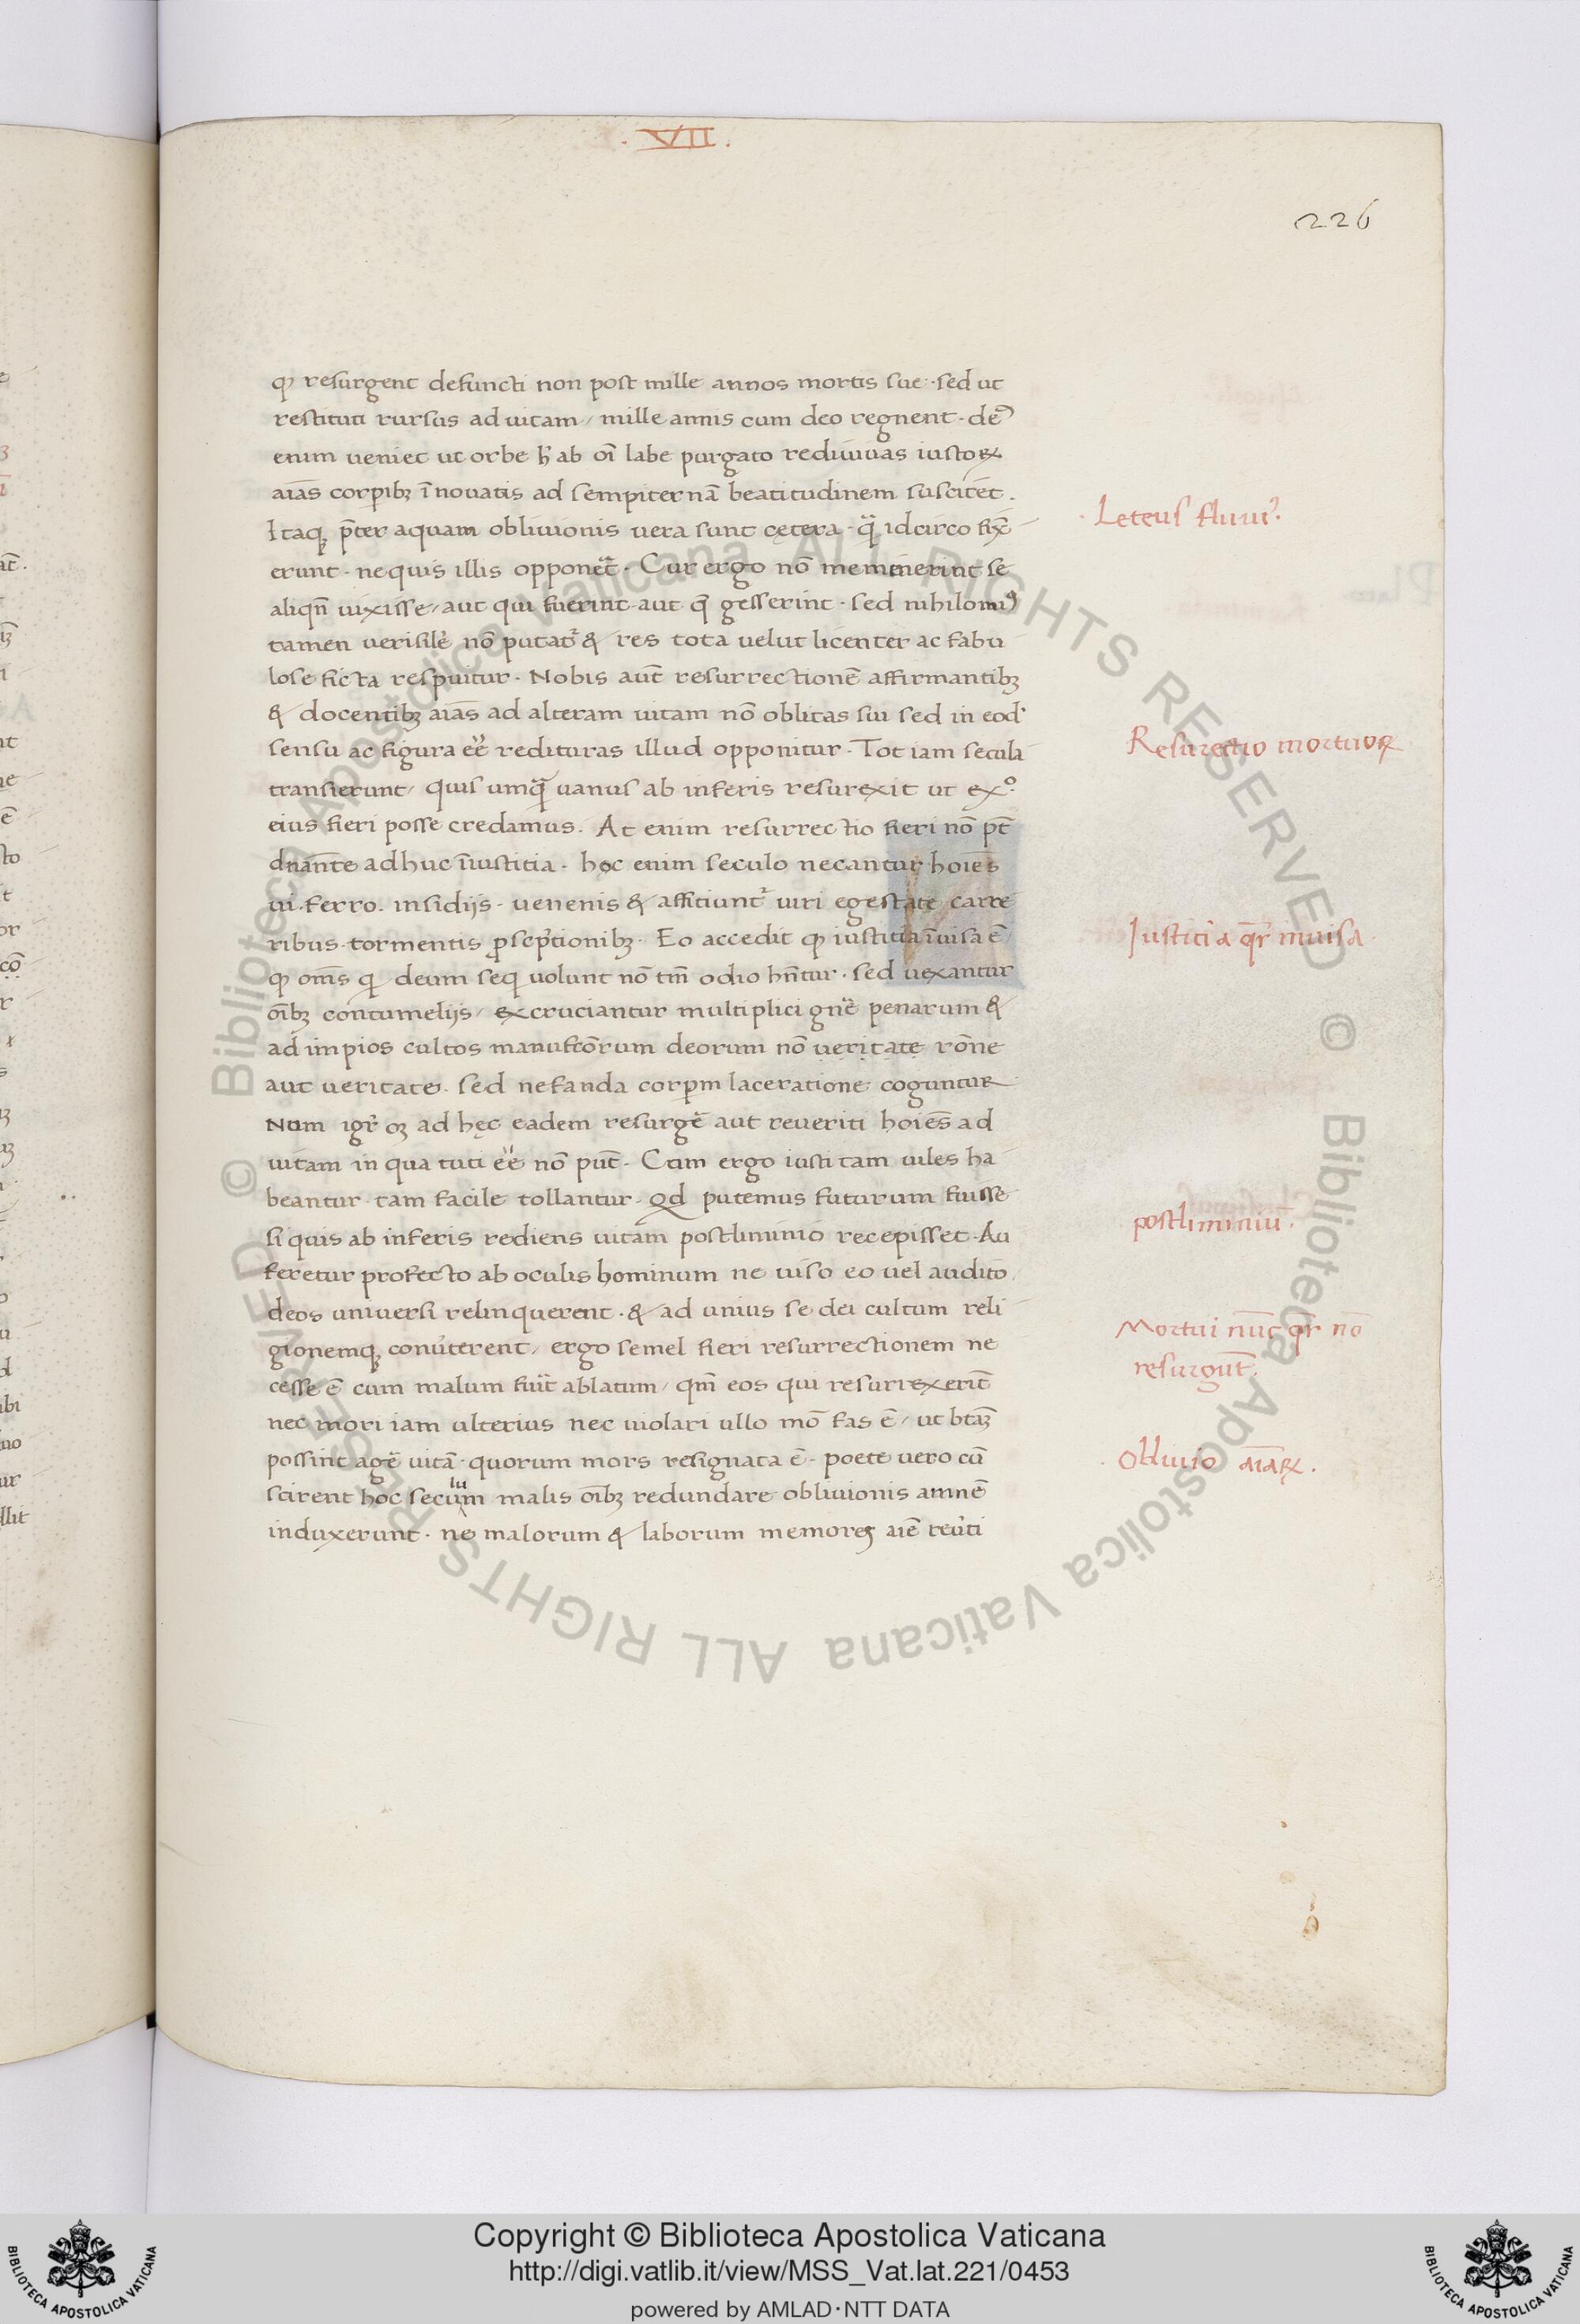 .VII.
226
ꝙ resurgent defuncti non post mille annos mortis sue · sed ut
restituti rursus ad uitam / mille annis cum deo regnent · de᷒
enim ueniet ut orbe h̄ ab oī labe purgato rediuiuas iustoꝝ
aīas corpibꝫ īnouatis ad sempiternā beatitudinem suscitet .
Itaqꝫ p̄ter aquam obliuionis uera sunt cętera · q̄ idcirco fix̄
erunt · ne quis illis opponēt · Cur ergo nō meminerint se
aliqn̄ uixisse / aut qui fuerint aut q̄ gesserint · sed nihilomiꝰ
tamen uerisile nō putat̄ & res tota uelut licenter ac fabu
lose ficta respuitur · Nobis aūt resurrectionē affirmantibꝫ
& docentibꝫ aīas ad alteram uitam nō oblitas sui sed in eod
sensu ac figura eē redituras illud opponitur · Tot iam secula
transierunt / quis umq̄ uanus ab inferis resurexit ut exᵒ
eius fieri posse credamus . At enim resurrectio fieri nō pt̄
dn̄ante adhuc īiustitia · hoc enim seculo necantur hoīes
ui · ferro · insidijs · uenenis & afficiunt̄ uiri egestate carce
ribus · tormentis ꝓscptionibꝫ · Eo accedit ꝙ iustitia īuisa ē
ꝙ om̄s q deum seq uolunt nō tm̄ odio hn̄tur · sed uexantur
oībꝫ contumelijs / excruciantur multiplici gn̄e penarum &
ad impios cultos manufcōrum deorum nō ueritate rōne
aut ueritate · sed nefanda corpm laceratione coguntur
Num igr̄ oꝫ ad hęc eadem resurgē aut reueriti hoīes ad
uitam in qua tuti eē nō pn̄t · Cum ergo iusti tam uiles ha
beantur · tam facile tollantur · Qd putemus futurum fuisse
si quis ab inferis rediens uitam postliminio recepisset · Au
feretur profecto ab oculis hominum ne uiso eo uel audito
deos uniuersi relinquerent · & ad unius se dei cultum reli
gionemqꝫ conu̓terent / ergo semel fieri resurrectionem ne
cesse ē cum malum fuīt ablatum / qm̄ eos qui resurrexerīt
nec mori iam ulterius nec uiolari ullo mō fas ē / ut btāꝫ
possint agē uitā · quorum mors resignata ē · poete uero cū
scirent hoc secu\lu/m malis oībꝫ redundare obliuionis amnē
induxerunt · ne malorum & laborum memores aīe reu̓ti
Leteus fluui᷒ .
Resurectio mortuoꝝ
Iustitia qr̄ inuisa
postliminiū .
Mortui nūc qr̄ nō
resurgūt .
Obliuio aīaꝝ .
Copyright © Biblioteca Apostolica Vaticana
http://digi.vatlib.it/view/MSS_Vat.lat.221/0453
powered by AMLAD·NTT DATA
BIBLIOTECA APOSTOLICA VATICANA
BIBLIOTECA APOSTOLICA VATICANA
© Biblioteca Apostolica Vaticana ALL RIGHTS RESERVED © Biblioteca Apostolica Vaticana ALL RIGHTS RESERVED